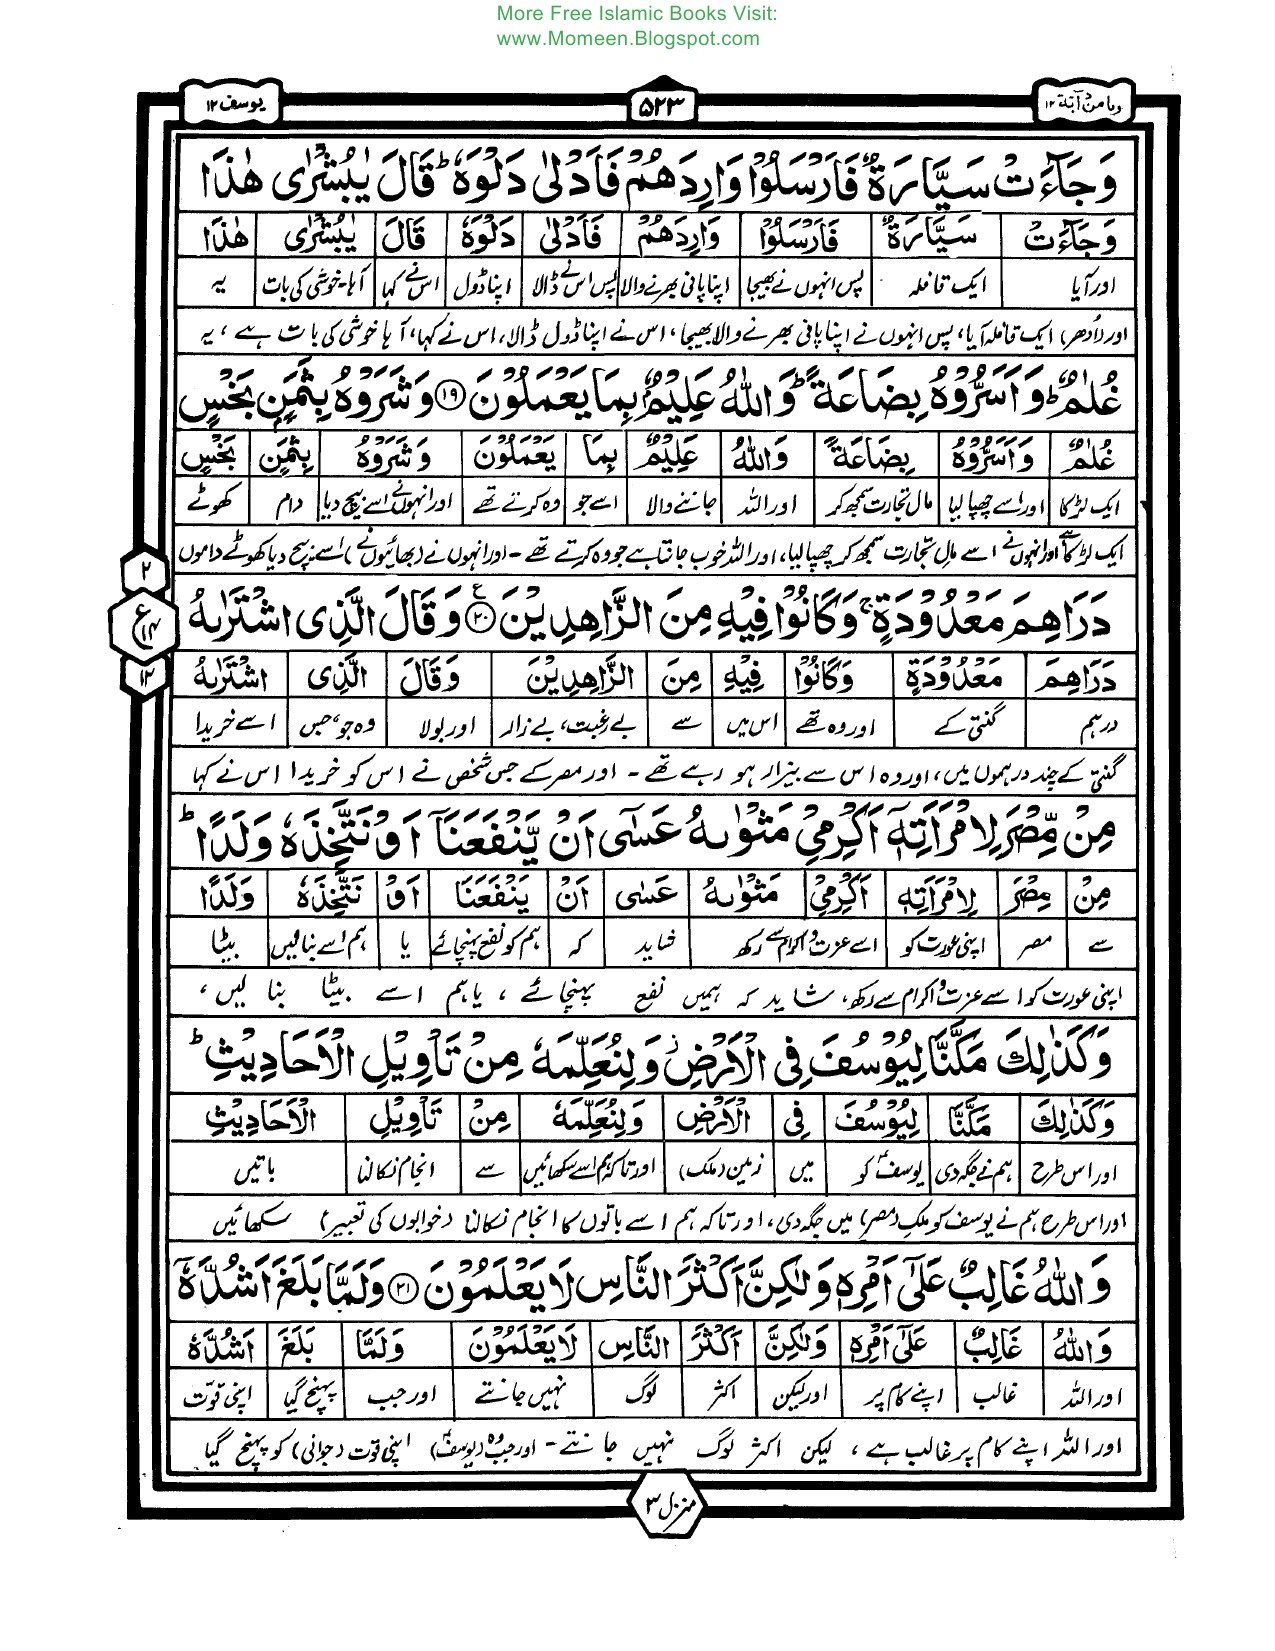 More Free Islamic Books Visit:
www.Momeen.Blogspot.com
وما من دآبة ۱۲
۵۲۳
یوسف ۱۲
وَجَآءَتْ سَیَّارَةٌ فَاَرْسَلُوْا وَارِدَهُمْ فَاَدْلٰی دَلْوَهٗ ؕ قَالَ یٰبُشْرٰی هٰذَا
وَجَآءَتْ سَیَّارَةٌ فَاَرْسَلُوْا وَارِدَهُمْ فَاَدْلٰی دَلْوَهٗ قَالَ یٰبُشْرٰی هٰذَا
اور آیا ایک قافلہ پس انہوں نے بھیجا اپنا پانی بھرنے والا پس اس نے ڈالا اپنا ڈول اس نے کہا آہا۔خوشی کی بات یہ
اور (اُدھر) ایک قافلہ آیا، پس انہوں نے اپنا پانی بھرنے والا بھیجا، اس نے اپنا ڈول ڈالا، اس نے کہا، آہا خوشی کی بات ہے ، یہ
غُلٰمٌ ؕ وَ اَسَرُّوْهُ بِضَاعَةً ؕ وَ اللّٰهُ عَلِیْمٌۢ بِمَا یَعْمَلُوْنَ ﴿۱۹﴾ وَ شَرَوْهُ بِثَمَنٍۭ بَخْسٍ
غُلٰمٌ وَاَسَرُّوْهُ بِضَاعَةً وَاللّٰهُ عَلِیْمٌۢ بِمَا یَعْمَلُوْنَ وَشَرَوْهُ بِثَمَنٍ بَخْسٍ
ایک لڑکا اور اسے چھپا لیا مال تجارت سمجھ کر اور اللہ جاننے والا اسے جو وہ کرتے تھے اور انہوں نے اسے بیچ دیا دام کھوٹے
ایک لڑکا ہے اور انہوں نے اسے مالِ تجارت سمجھ کر چھپا لیا، اور اللہ خوب جانتا ہے جو وہ کرتے تھے ۔ اور انہوں نے (بھائیوں نے) اسے بیچ دیا کھوٹے داموں
دَرَاهِمَ مَعْدُوْدَةٍ ۚ وَ كَانُوْا فِیْهِ مِنَ الزَّاهِدِیْنَ ﴿۲۰﴾ وَ قَالَ الَّذِی اشْتَرٰىهُ
۲
ع ۱۲
۱۲
دَرَاهِمَ مَعْدُوْدَةٍ وَكَانُوْا فِیْهِ مِنَ الزَّاهِدِیْنَ وَقَالَ الَّذِی اشْتَرٰىهُ
درہم گنتی کے اور وہ تھے اس میں سے بے رغبت، بے زار اور بولا وہ جو، جس اسے خریدا
گنتی کے چند درہموں میں، اور وہ اس سے بیزار ہو رہے تھے ۔ اور مصر کے جس شخص نے اس کو خریدا اس نے کہا
مِنْ مِّصْرَ لِامْرَاَتِهٖۤ اَكْرِمِیْ مَثْوٰىهُ عَسٰۤی اَنْ یَّنْفَعَنَاۤ اَوْ نَتَّخِذَهٗ وَلَدًا ؕ
مِنْ مِصْرَ لِامْرَاَتِهٖ اَكْرِمِیْ مَثْوٰىهُ عَسٰی اَنْ یَنْفَعَنَا اَوْ نَتَّخِذَهٗ وَلَدًا
سے مصر اپنی عورت کو اسے عزت و اکرام سے رکھ شاید کہ ہم کو نفع پہنچائے یا ہم اسے بنالیں بیٹا
اپنی عورت کو اسے عزت و اکرام سے رکھ، شاید کہ ہمیں نفع پہنچائے ، یا ہم اسے بیٹا بنا لیں ،
وَ كَذٰلِكَ مَكَّنَّا لِیُوْسُفَ فِی الْاَرْضِ ؗ وَ لِنُعَلِّمَهٗ مِنْ تَاْوِیْلِ الْاَحَادِیْثِ ؕ
وَكَذٰلِكَ مَكَّنَّا لِیُوْسُفَ فِی الْاَرْضِ وَلِنُعَلِّمَهٗ مِنْ تَاْوِیْلِ الْاَحَادِیْثِ
اور اس طرح ہم نے جگہ دی یوسفؑ کو میں زمین (ملک) اور تاکہ ہم اسے سکھائیں سے انجام نکالنا باتیں
اور اس طرح ہم نے یوسف کو ملک (مصر) میں جگہ دی، اور تاکہ ہم اسے باتوں کا انجام نکالنا (خوابوں کی تعبیر) سکھائیں
وَ اللّٰهُ غَالِبٌ عَلٰۤی اَمْرِهٖ وَ لٰكِنَّ اَكْثَرَ النَّاسِ لَا یَعْلَمُوْنَ ﴿۲۱﴾ وَ لَمَّا بَلَغَ اَشُدَّهٗۤ
وَاللّٰهُ غَالِبٌ عَلٰۤی اَمْرِهٖ وَلٰكِنَّ اَكْثَرَ النَّاسِ لَا یَعْلَمُوْنَ وَلَمَّا بَلَغَ اَشُدَّهٗ
اور اللہ غالب اپنے کام پر اور لیکن اکثر لوگ نہیں جانتے اور جب پہنچ گیا اپنی قوّت
اور اللہ اپنے کام پر غالب ہے ، لیکن اکثر لوگ نہیں جانتے ۔ اور جب وہ (یوسفؑ) اپنی قوت (جوانی) کو پہنچ گیا
منزل ۳